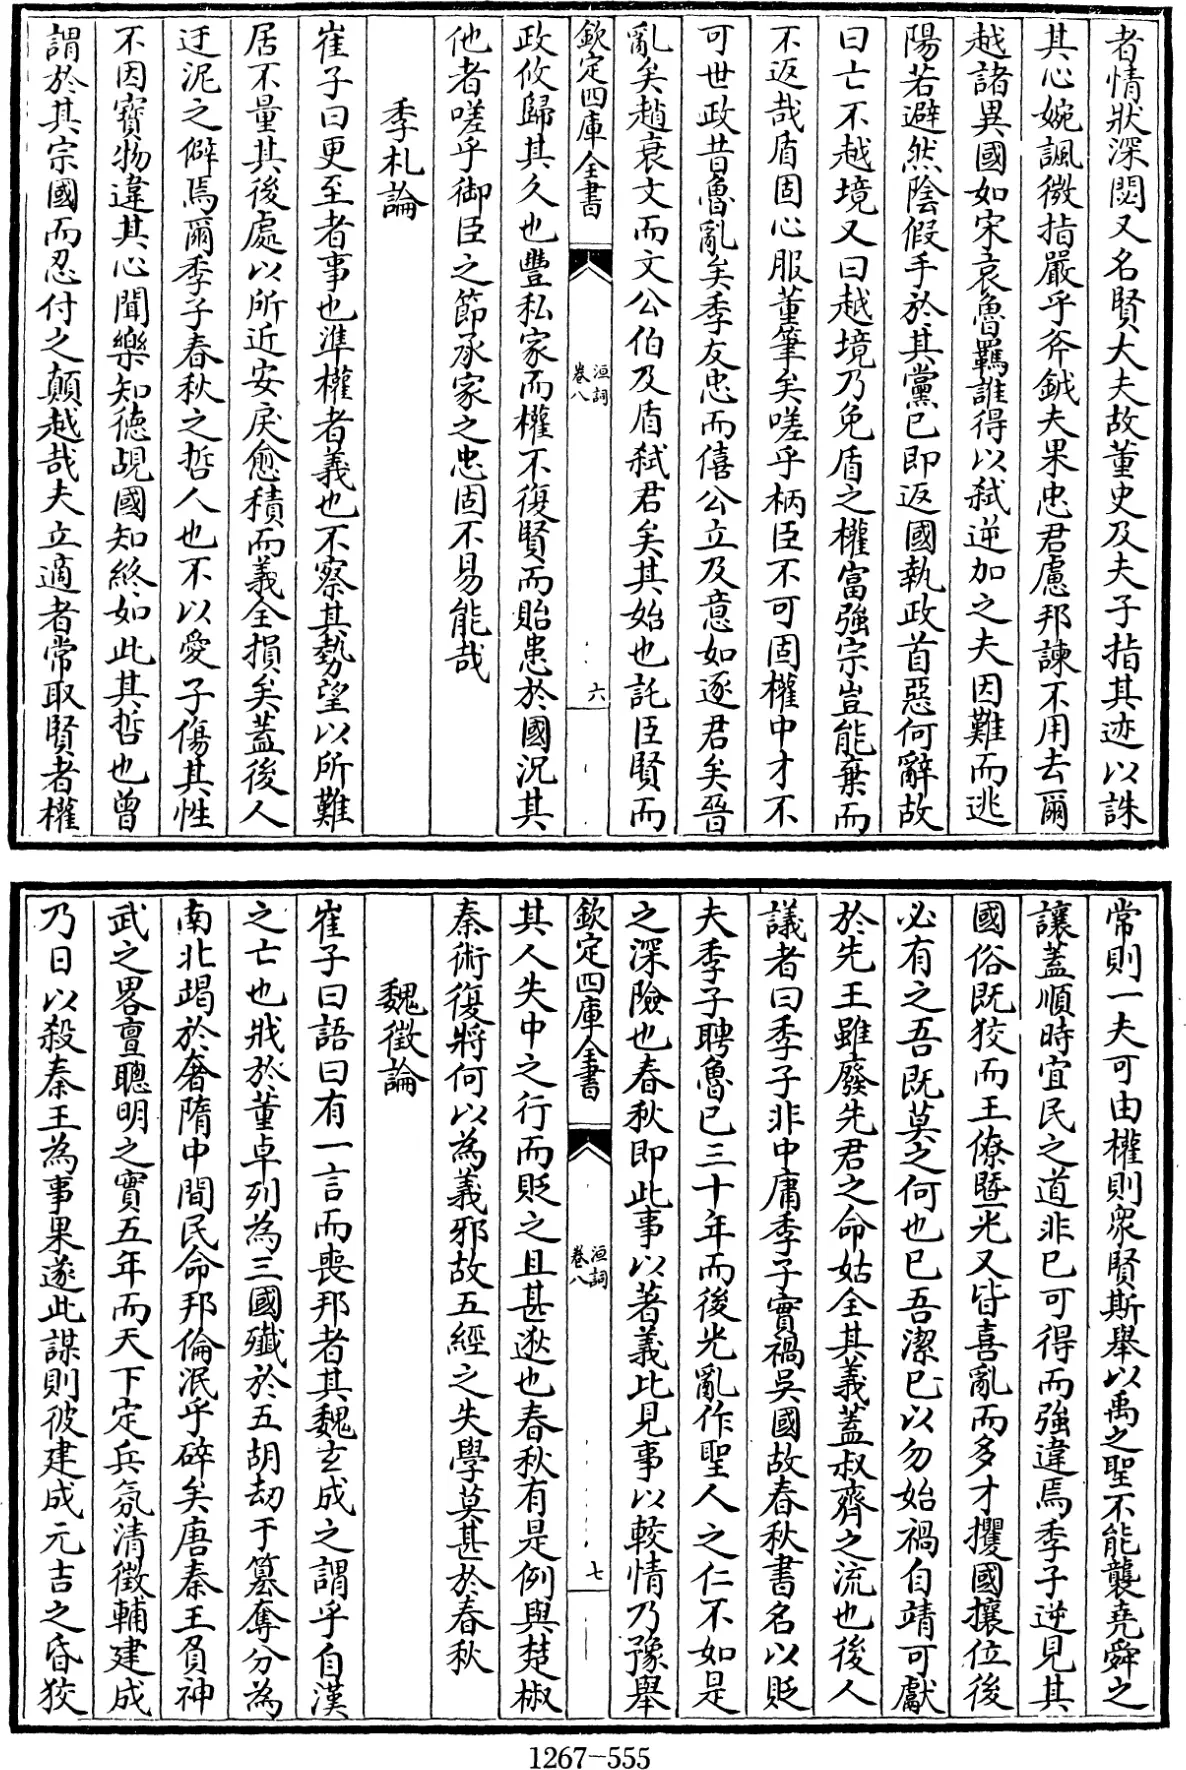 者情狀深閟又名賢大夫故董史及夫子指其迹以誅
其心婉諷微指嚴乎斧鉞夫果忠君慮邦諫不用去爾
越諸異國如宋哀魯羈誰得以弑逆加之夫因難而逃
陽若避然陰假手於其黨已即返國執政首惡何辭故
曰亡不越境又曰越境乃免盾之權富強宗豈能棄而
不返哉盾固心服董筆矣嗟乎柄臣不可固權中才不
可世政昔魯亂矣季友忠而僖公立及意如逐君矣晉
亂矣趙衰文而文公伯及盾弑君矣其始也託臣賢而
欽定四庫全書
洹詞
卷八
六
政攸歸其久也豐私家而權不復賢而貽患於國況其
他者嗟乎御臣之節承家之忠固不易能哉
季札論
崔子曰更至者事也準權者義也不察其勢望以所難
居不量其後處以所近安戾愈積而義全損矣蓋後人
迂泥之僻焉爾季子春秋之哲人也不以愛子傷其性
不因寶物違其心聞樂知德覘國知終如此其哲也曾
謂於其宗國而忍付之顛越哉夫立適者常取賢者權
常則一夫可由權則衆賢斯舉以禹之聖不能襲堯舜之
讓蓋順時宜民之道非已可得而強違焉季子逆見其
國俗既狡而王僚曁光又皆喜亂而多才攫國攘位後
必有之吾既莫之何也已吾潔已以勿始禍自靖可獻
於先王雖廢先君之命姑全其義蓋叔齊之流也後人
議者曰季子非中庸季子實禍吳國故春秋書名以貶
夫季子聘魯已三十年而後光亂作聖人之仁不如是
之深險也春秋即此事以著義此見事以較情乃豫舉
欽定四庫全書
洹詞
卷八
七
其人失中之行而貶之且甚逖也春秋有是例與楚椒
秦術復將何以為義邪故五經之失學莫甚於春秋
魏徵論
崔子曰語曰有一言而喪邦者其魏玄成之謂乎自漢
之亡也戕於董卓列為三國殲於五胡劫于篡奪分為
南北竭於奢隋中間民命邦倫泯乎碎矣唐秦王負神
武之畧亶聰明之實五年而天下定兵氛清徵輔建成
乃日以殺秦王為事果遂此謀則彼建成元吉之昏狡
1267-555